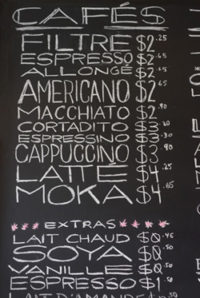 CAFÉS
FILTRE $2.25
ESPRESSO $2.65
ALLONGÉ $2.65
AMERICANO $2
MACCHIATO $2
CORTADITO $3
ESPRESSINO $3
CAPPUCCINO $3
LATTE $4.25
MOKA $4.65
EXTRAS
LAIT CHAUD $0
SOYA $0
VANILLE $0
ESPRESSO $1.50